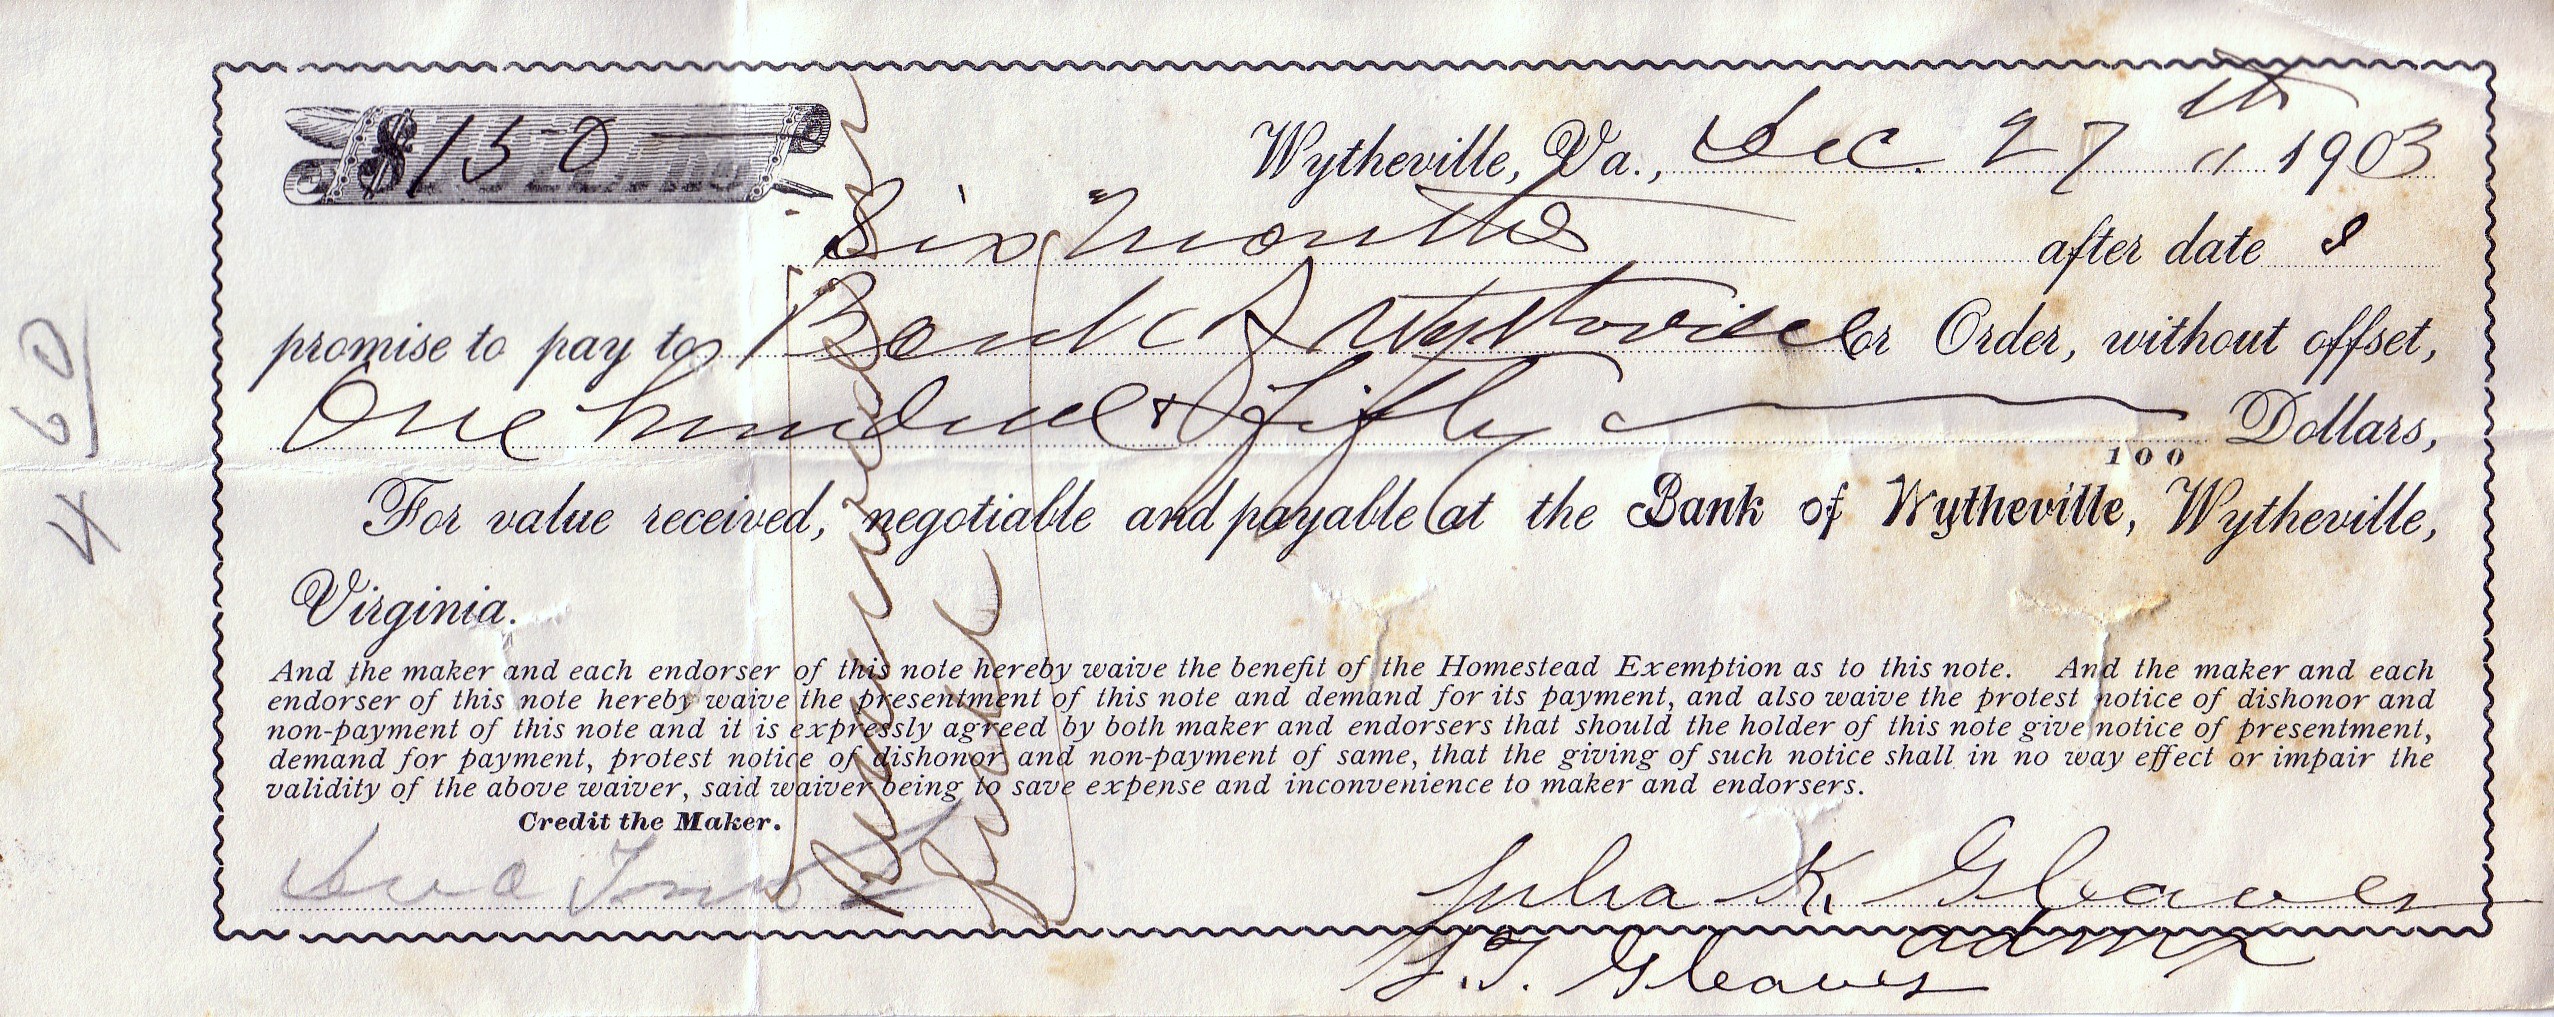 $150
Wytheville, Va., Dec. 27th 1903
Six Months after date I
promise to pay to Bank of Wytheville or Order, without offset,
One hundred & fifty 100 Dollars,
For value received, negotiable and payable at the Bank of Wytheville, Wytheville,
Virginia.
And the maker and each endorser of this note hereby waive the benefit of the Homestead Exemption as to this note. And the maker and each
endorser of this note hereby waive the presentment of this note and demand for its payment, and also waive the protest notice of dishonor and
non-payment of this note and it is expressly agreed by both maker and endorsers that should the holder of this note give notice of presentment,
demand for payment, protest notice of dishonor and non-payment of same, that the giving of such notice shall in no way effect or impair the
validity of the above waiver, said waiver being to save expense and inconvenience to maker and endorsers.
Credit the Maker.
Julia K. Gleaves
admx
S.T. Gleaves
460